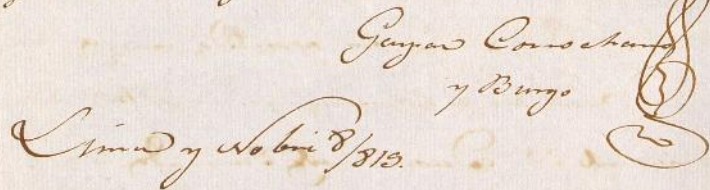 Gaspar Corrochano
y Burgo
Lima y Nobre 8/819.